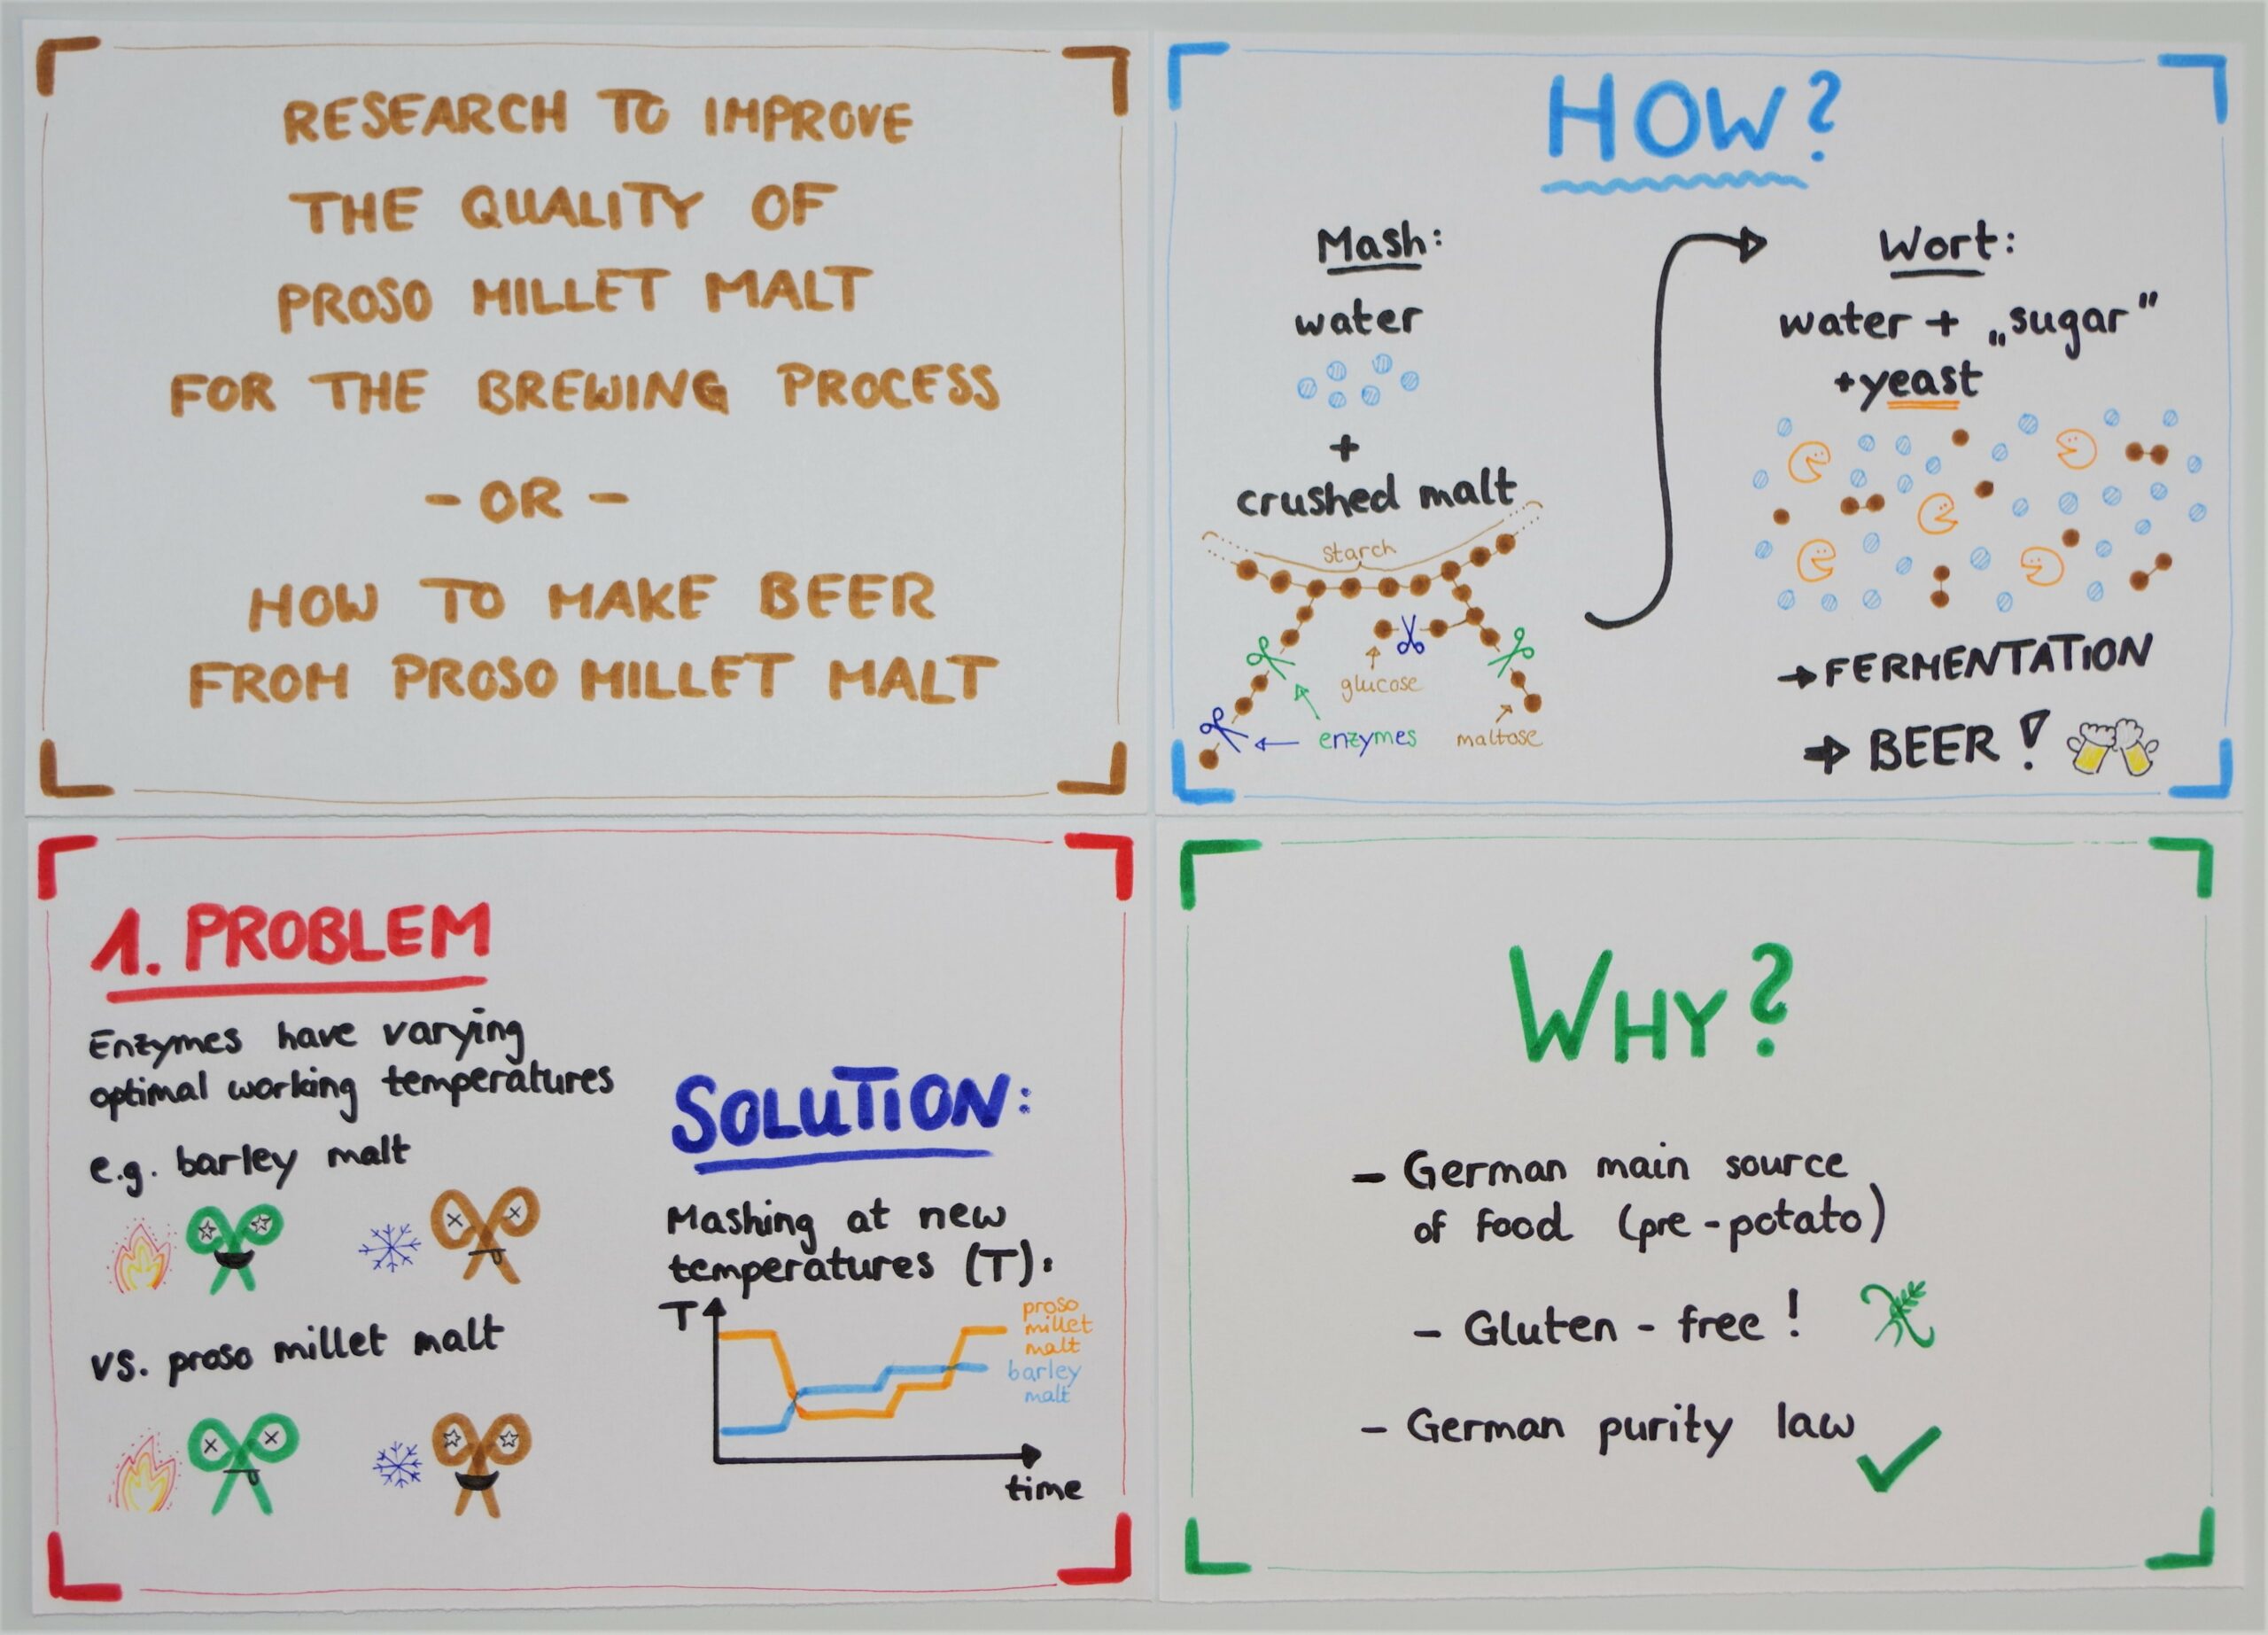 RESEARCH TO IMPROVE
THE QUALITY OF
PROSO MILLET MALT
FOR THE BREWING PROCESS
- OR -
HOW TO MAKE BEER
FROM PROSO MILLET MALT
HOW?
Mash:
water
+
crushed malt
starch
glucose
enzymes
maltose
Wort:
water + „sugar"
+yeast
→ FERMENTATION
⇒ BEER!
1. PROBLEM
Enzymes have varying
optimal working temperatures
e.g. barley malt
vs. proso millet malt
SOLUTION:
Mashing at new
temperatures (T):
T
proso
millet
malt
barley
malt
time
WHY?
- German main source
of food (pre-potato)
- Gluten-free!
- German purity law